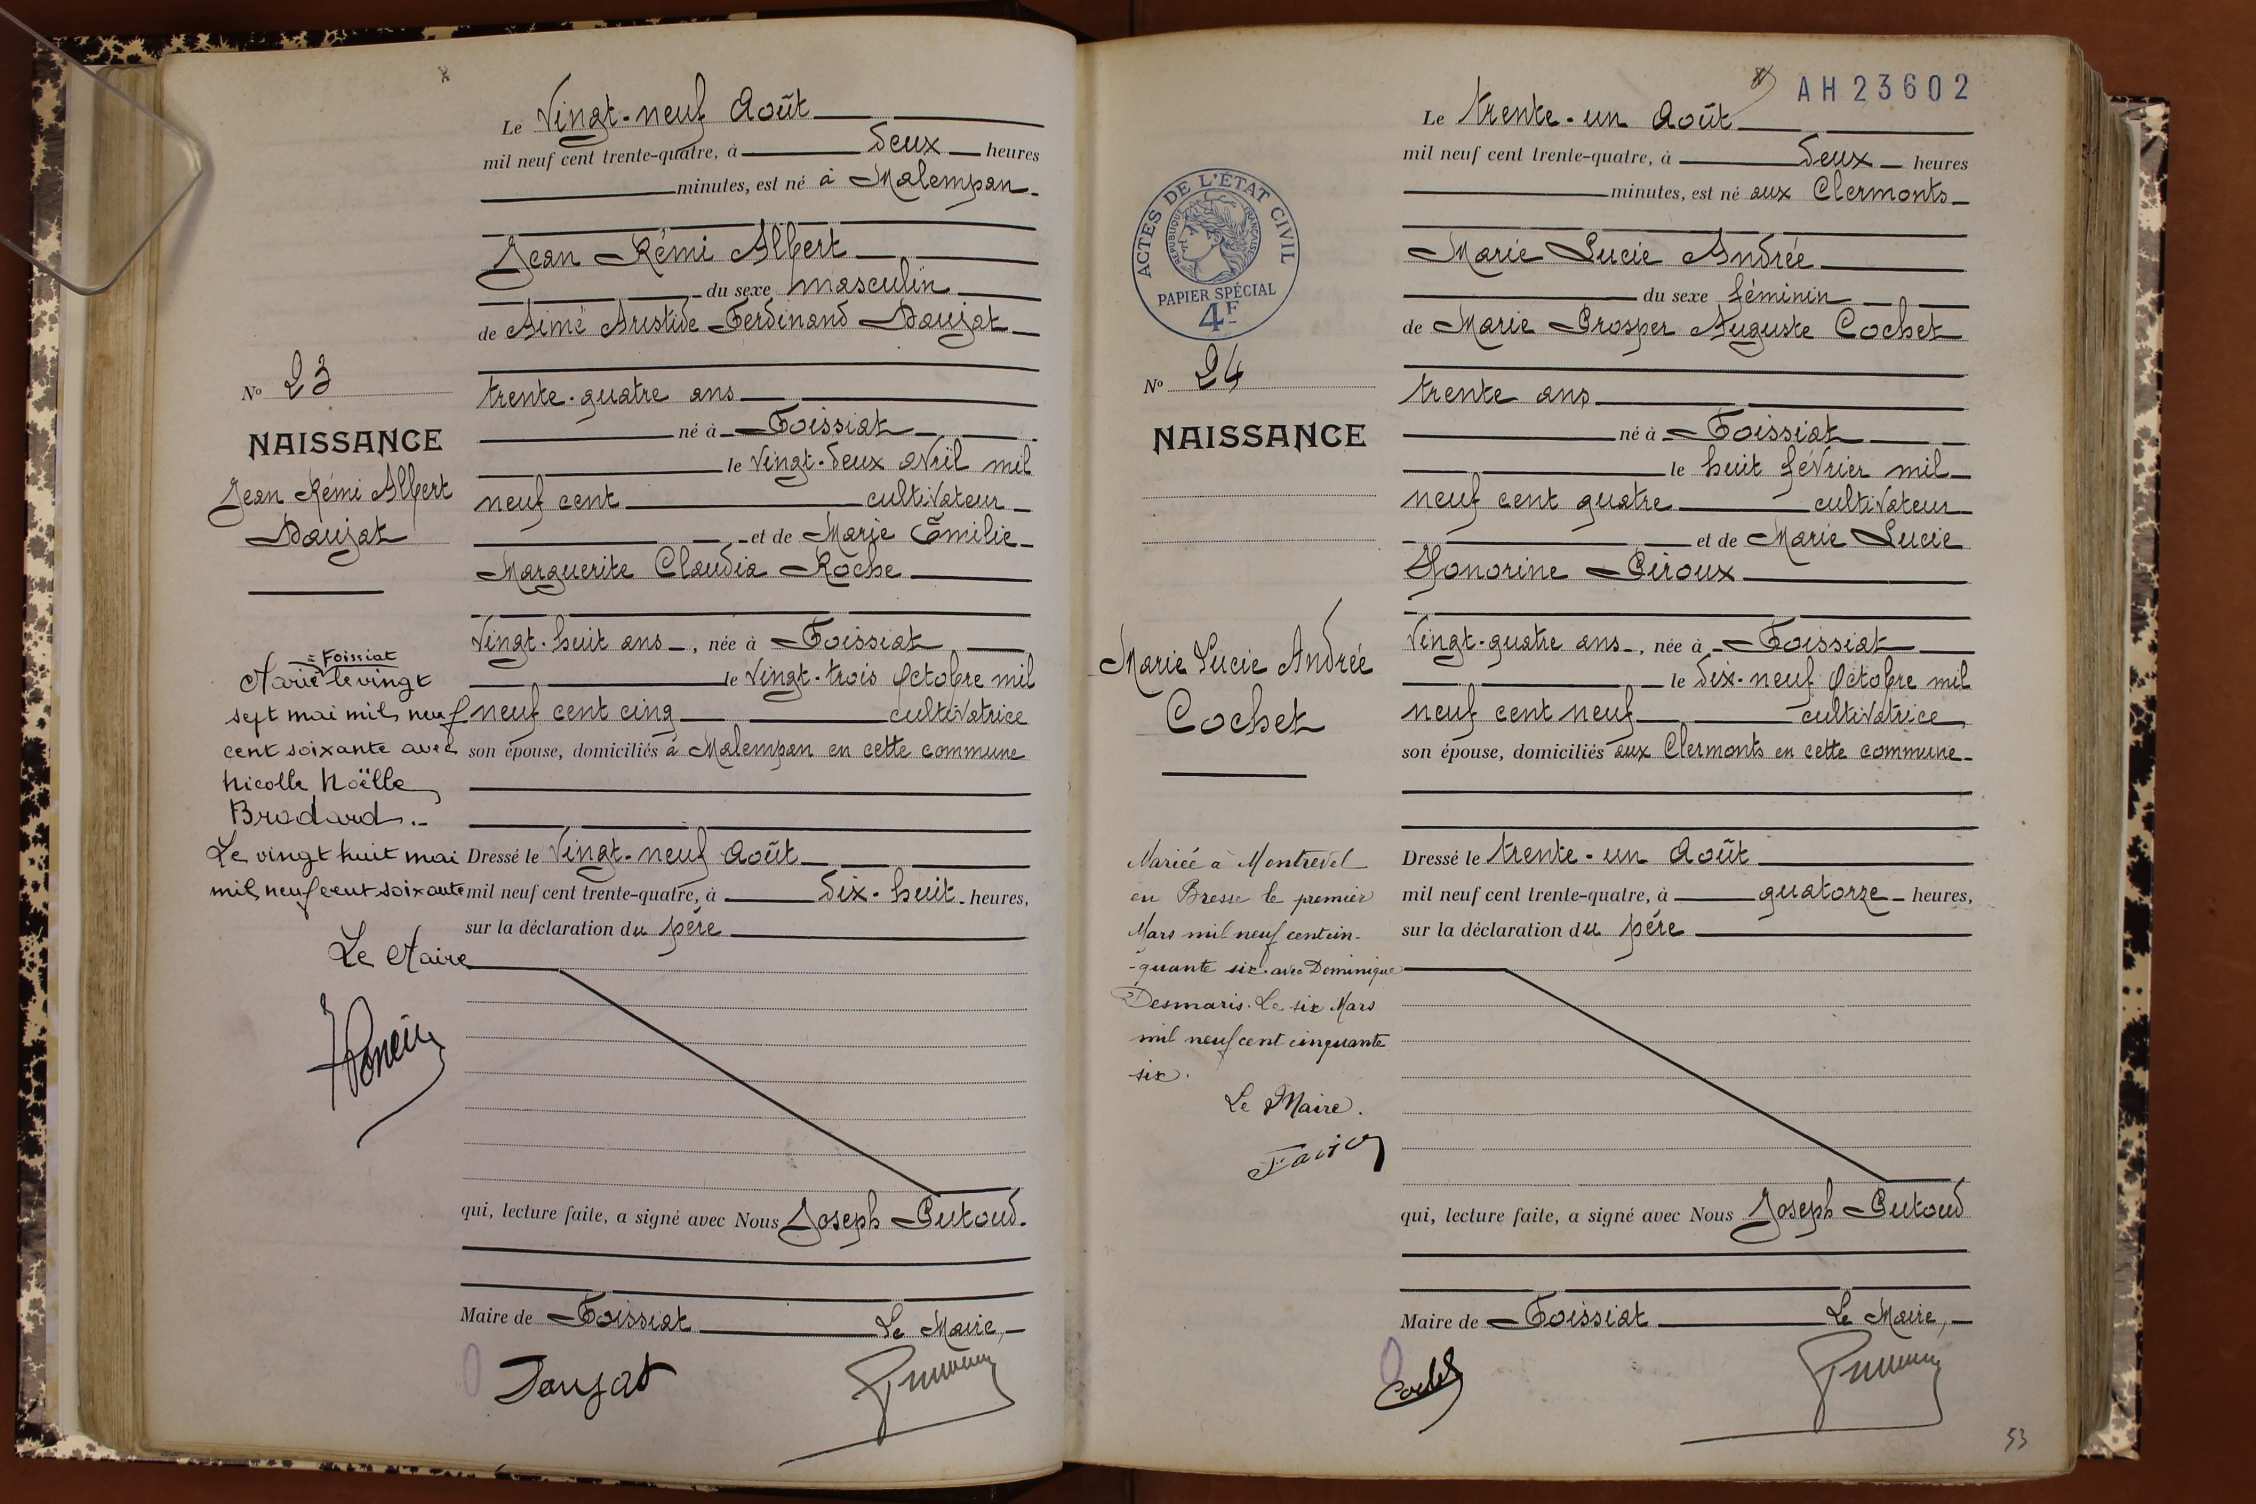 Le Vingt-neuf Août
mil neuf cent trente-quatre, à deux heures
minutes, est né à Malempan
Jean Rémi Albert
du sexe masculin
de Aimé Aristide Ferdinand Daujat
No 23
trente-quatre ans
né à Foissiat
NAISSANCE
le vingt-deux avril mil
Jean Rémi Albert
neuf cent cultivateur
Daujat
et de Marie Emilie
Marguerite Claudia Roche
Vingt-huit ans, née à Foissiat
à Foissiat
Marié le vingt
le Vingt-trois Octobre mil
sept mai mil neuf
neuf cent cinq cultivatrice
cent soixante avec
son épouse, domiciliés à Malempan en cette commune
Nicolle Noëlle
Brodard.-
Le vingt huit mai
Dressé le Vingt-neuf Août
mil neuf cent soixante
mil neuf cent trente-quatre, à dix-huit heures,
sur la déclaration du père
Le Maire
qui, lecture faite, a signé avec Nous Joseph Putoud.
Maire de Foissiat Le Maire,
Daujat
AH 23602
Le trente-un Août
mil neuf cent trente-quatre, à deux heures
minutes, est né aux Clermonts
ACTES DE L'ÉTAT CIVIL
RÉPUBLIQUE FRANÇAISE
PAPIER SPÉCIAL
4F
Marie Lucie Andrée
du sexe féminin
de Marie Prosper Auguste Cochet
No 24
trente ans
né à Foissiat
NAISSANCE
le huit février mil
neuf cent quatre cultivateur
et de Marie Lucie
Honorine Piroux
Vingt-quatre ans, née à Foissiat
Marie Lucie Andrée
Cochet
le dix-neuf Octobre mil
neuf cent neuf cultivatrice
son épouse, domiciliés aux Clermonts en cette commune
Mariée à Montrevel
en Bresse le premier
Mars mil neuf cent cin-
-quante six avec Dominique
Desmaris. Le six Mars
mil neuf cent cinquante
six.
Le Maire.
Dressé le trente-un Août
mil neuf cent trente-quatre, à quatorze heures,
sur la déclaration du père
qui, lecture faite, a signé avec Nous Joseph Putoud
Maire de Foissiat Le Maire,
Cochet
53